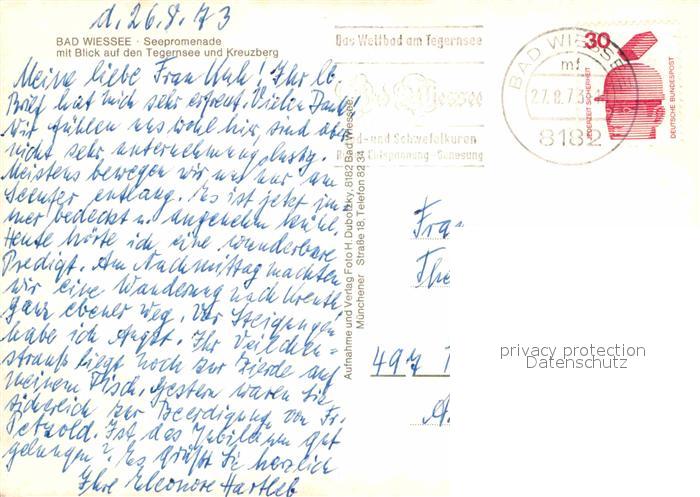 d. 26.8.73
BAD WIESSEE · Seepromenade
mit Blick auf den Tegernsee und Kreuzberg
Meine liebe Frau Kuh! Ihr lb.
Brief hat mich sehr erfreut. Vielen Dank
Wir fühlen uns wohl hier, sind aber
nicht sehr unternehmungslustig.
Meistens bewegen wir uns nur am
Seeufer entlang. Es ist jetzt im
mer bedeckt u. angenehm kühl.
Heute hörte ich eine wunderbare
Predigt. Am Nachmittag machten
wir eine Wanderung nach Kreuth
ganz ebener Weg. Vor Steigungen
habe ich Angst. Ihr Veilchen=
strauß liegt noch zur Zierde auf
meinem Tisch. Gestern waren Sie
sicherlich zur Beerdigung von Fr.
Petzold. Ist das Jubiläum gut
gelungen? Es grüßt Sie herzlich
Ihre Eleonore Hartleb
Aufnahme und Verlag Foto H. Dubotzky, 8182 Bad Wiessee,
Münchener Straße 18, Telefon 82 34
Das Weltbad am Tegernsee
Bad Wiessee
Jod- und Schwefelkuren
Entspannung · Genesung
BAD WIESSEE
mf
27.8.73
8182
30
JEDERZEIT SICHERHEIT
DEUTSCHE BUNDESPOST
Fra
The
497
privacy protection
Datenschutz